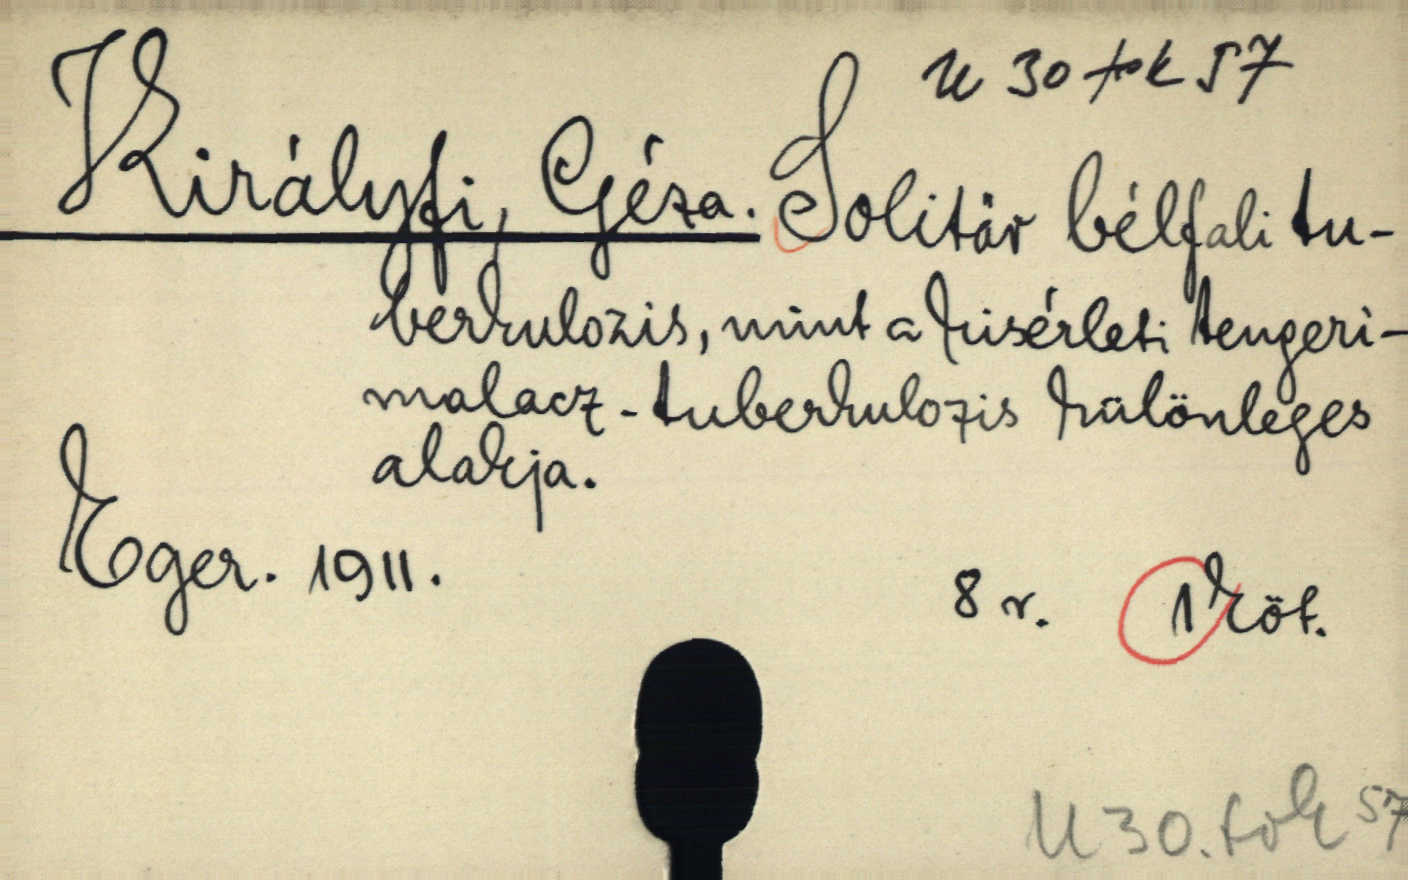 U 30 tok 57
Királyfi, Géza. Solitär bélfali tu-
berkulozis, mint a kisérleti tengeri-
malacz-tuberkulozis különleges
alakja.
Eger. 1911.
8 r. 1 köt.
U 30. tok 57